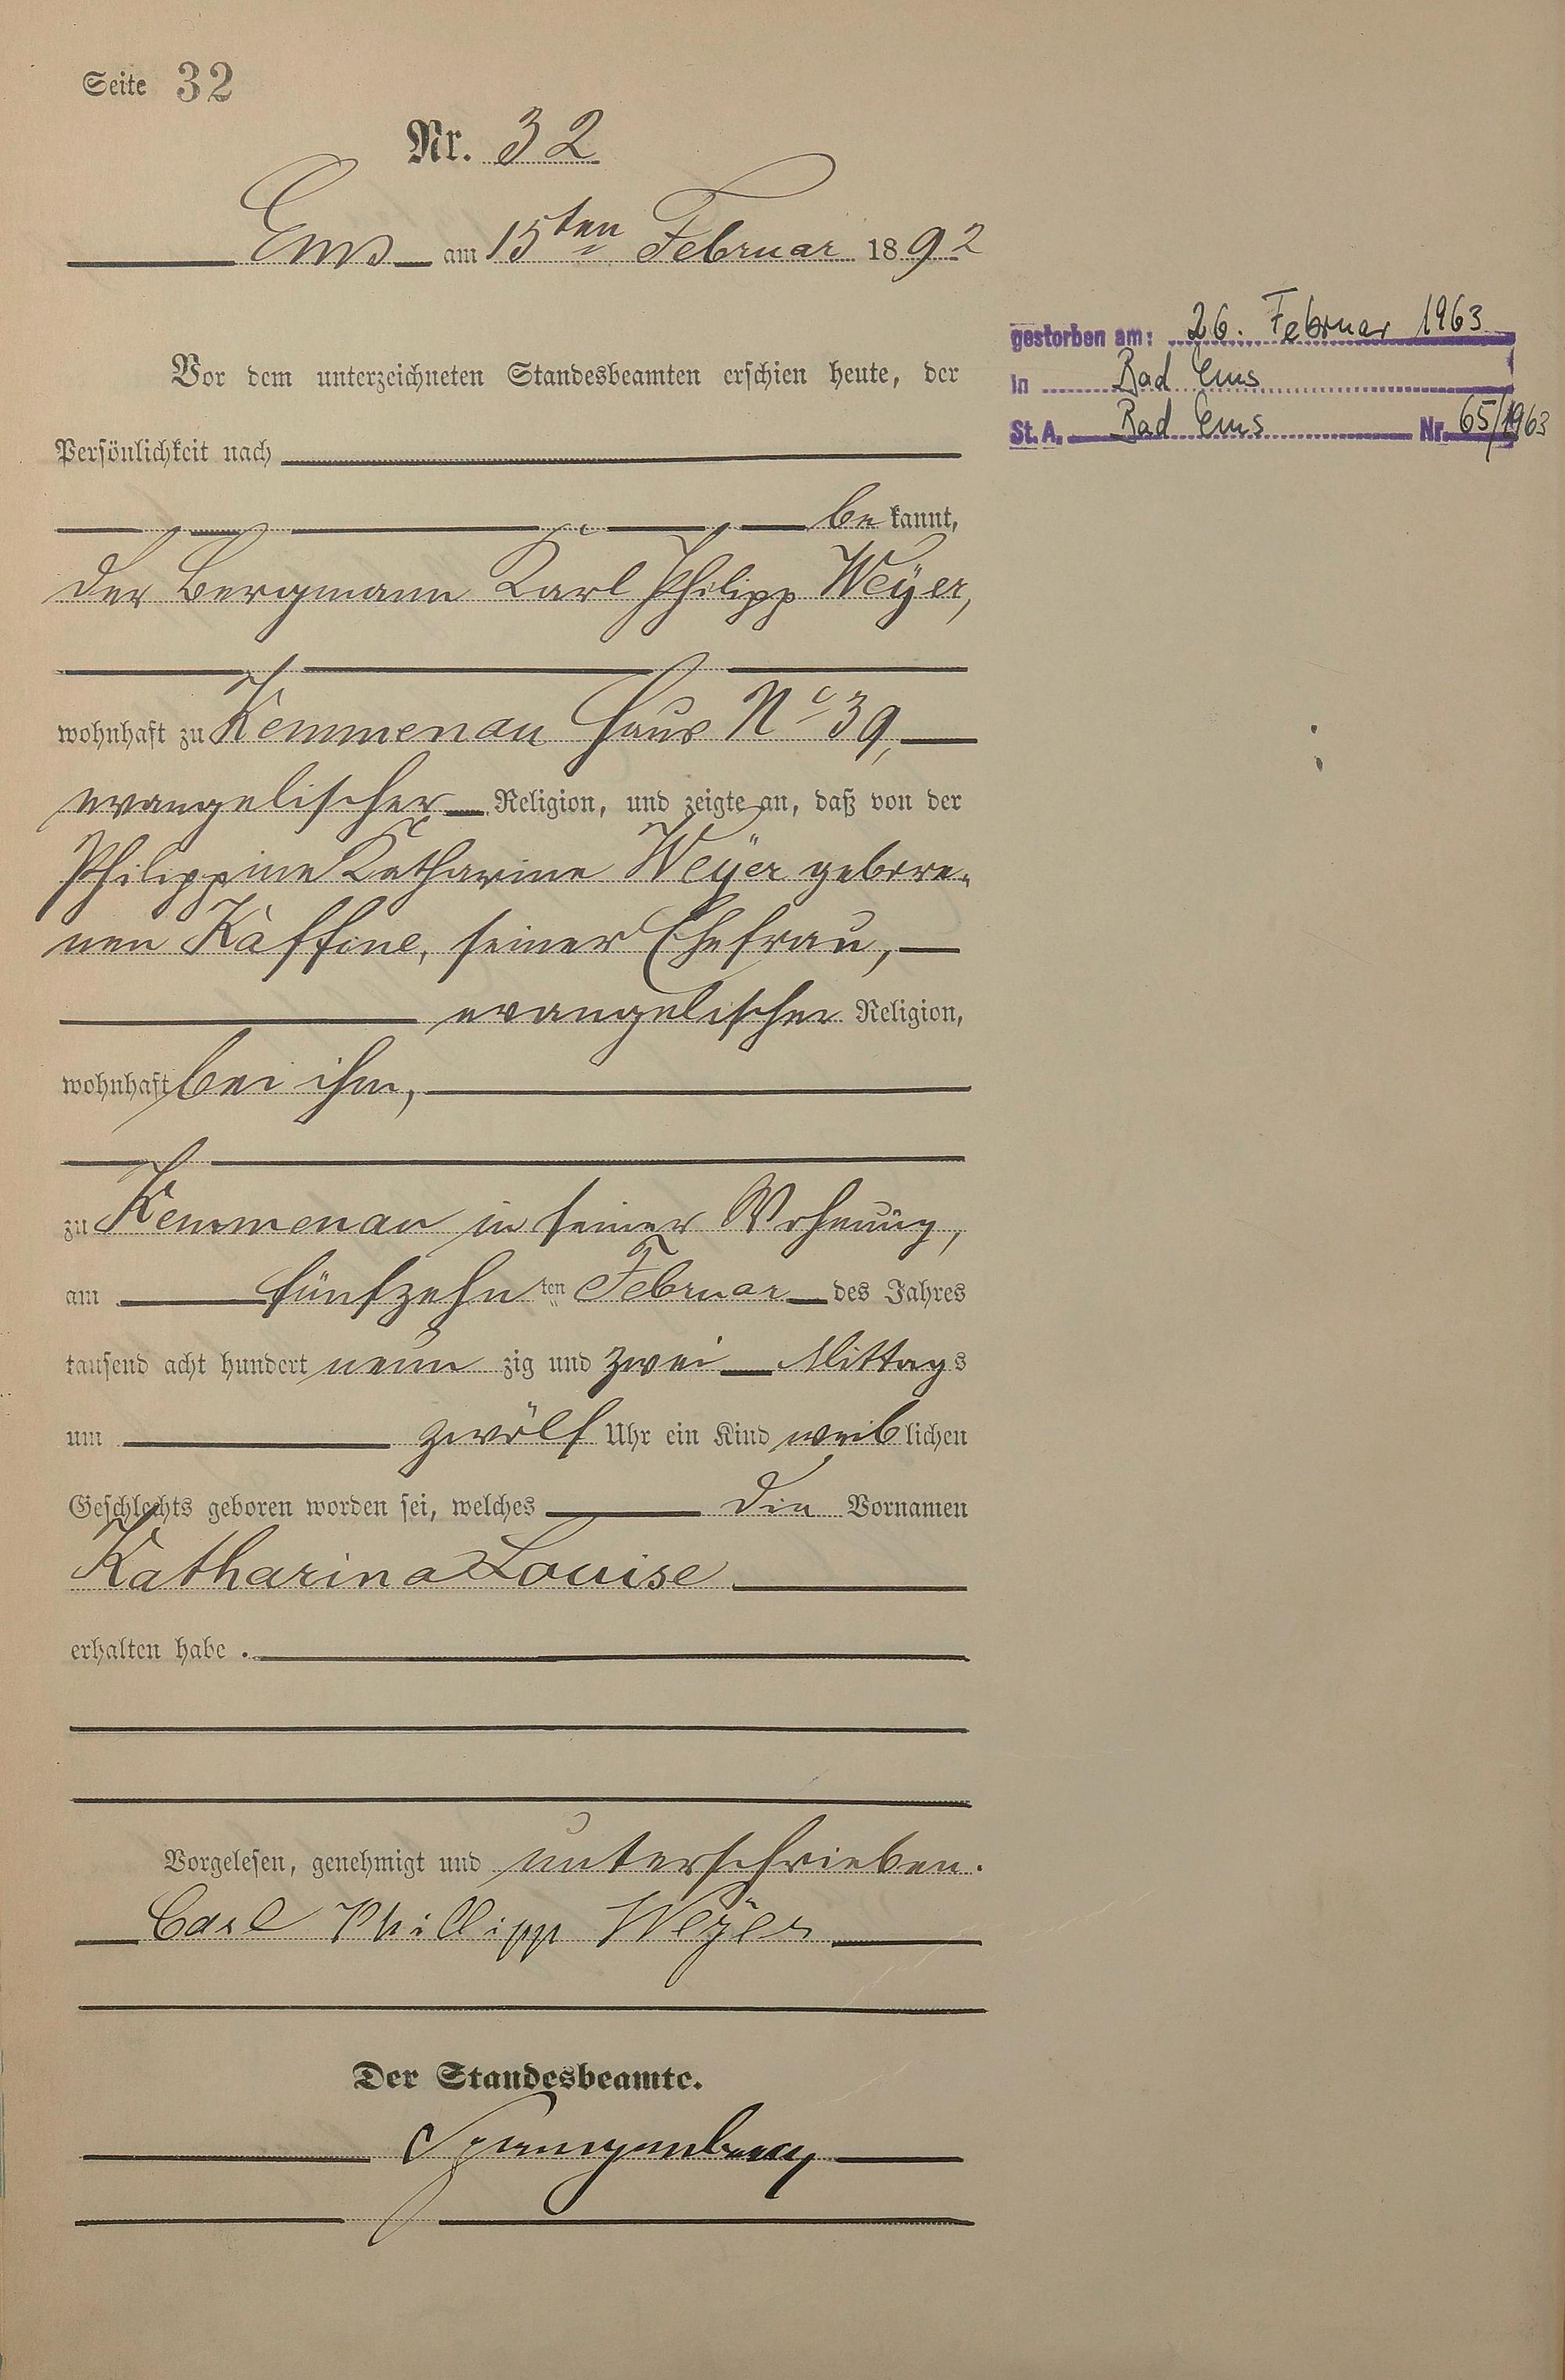 Seite 32
Nr. 32
Ems am 15ten Februar 1892
gestorben am: 26. Februar 1963
in Bad Ems
St. A. Bad Ems Nr. 65/1963
Vor dem unterzeichneten Standesbeamten erschien heute, der
Persönlichkeit nach
bekannt,
der Bergmann Karl Philipp Weÿer,
wohnhaft zu Kemmenau Haus No 39,
evangelischer Religion, und zeigte an, daß von der
Philippine Katharine Weÿer gebore-
nen Kaffine, seiner Ehefrau,
evangelischer Religion,
wohnhaft bei ihm,
zu Kemmenau in seiner Wohnung,
am fünfzehnten Februar des Jahres
tausend acht hundert neunzig und zwei Mittags
um zwölf Uhr ein Kind weiblichen
Geschlechts geboren worden sei, welches die Vornamen
Katharina Louise
erhalten habe.
Vorgelesen, genehmigt und unterschrieben.
Carl Phillipp Weÿer
Der Standesbeamte.
Spangenberg